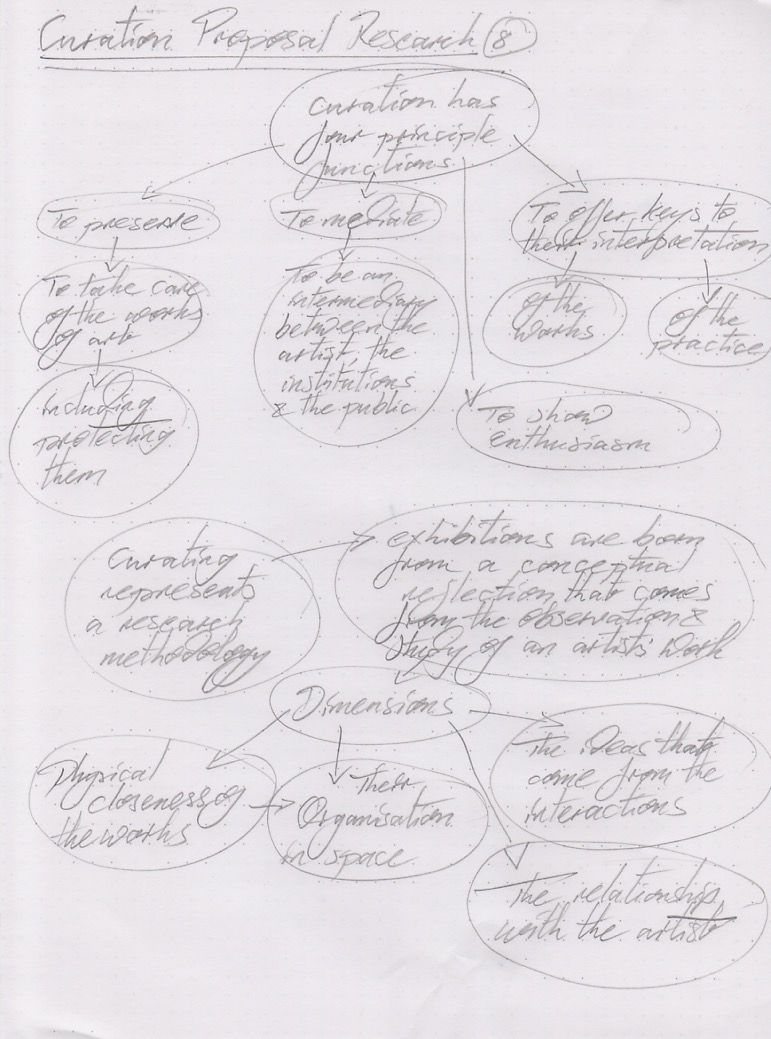 Curation Proposal Research 8
curation has
four principle
functions
To preserve
To mediate
To offer keys to
their interpretation
To take care
of the works
of art
To be an
intermediary
between the
artist, the
institutions
& the public
of the
works
of the
practice
including
protecting
them
To show
enthusiasm
Curating
represents
a research
methodology
exhibitions are born
from a conceptual
reflection that comes
from the observation &
study of an artist's work
Dimensions
Physical
closeness of
the works
Their
Organisation
in space
The ideas that
come from the
interactions
The relationship
with the artist